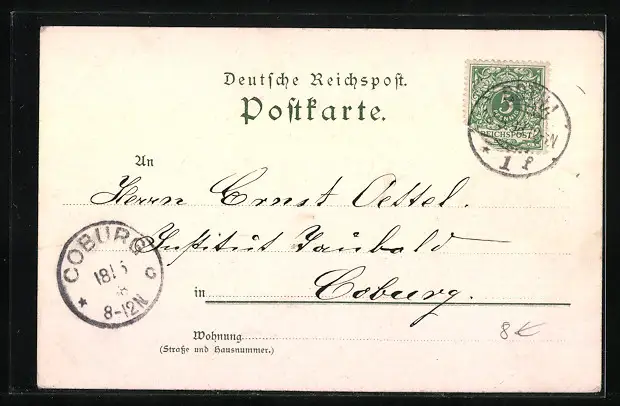 Deutsche Reichspost.
Postkarte.
5
PFENNIG
REICHSPOST
1 f
An
Herrn Ernst Oettel.
Institut Taubald
in Coburg.
COBURG
18/5
8-12N
Wohnung
(Straße und Hausnummer.)
8€